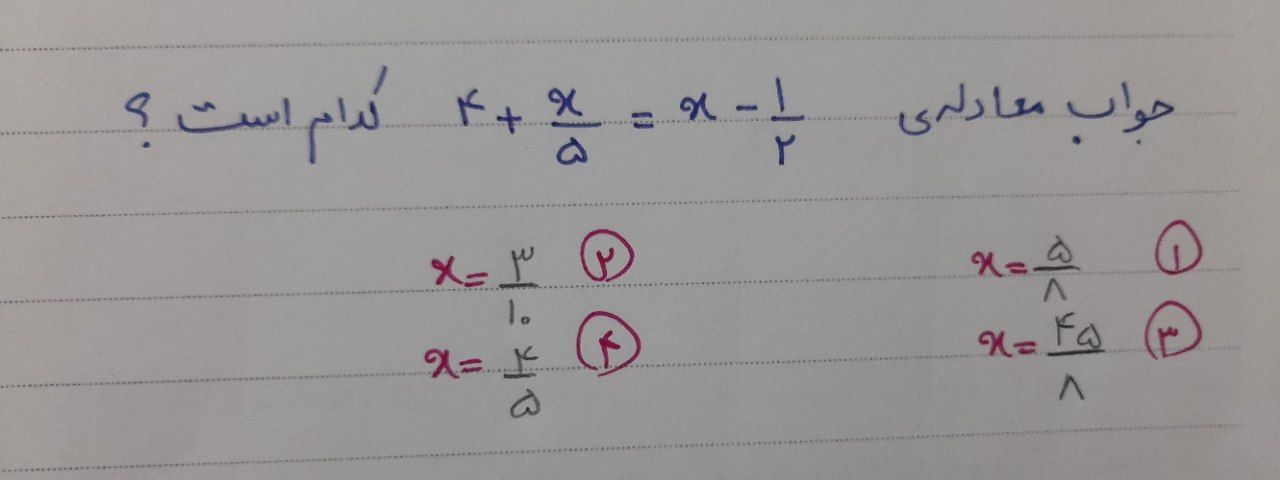 جواب معادله‌ی ۴ + x/۵ = x - ۱/۲ کدام است ؟
① x = ۵/۸ ② x = ۳/۱۰
③ x = ۴۵/۸ ④ x = ۴/۵